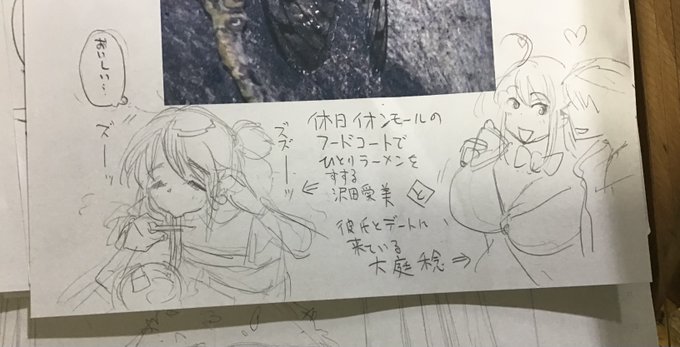 おいしい…
ズズーーッ
ズズーーッ
休日イオンモールの
フードコートで
ひとりラーメンを
すする
沢田愛美
と
彼氏とデートに
来ている
大庭稔